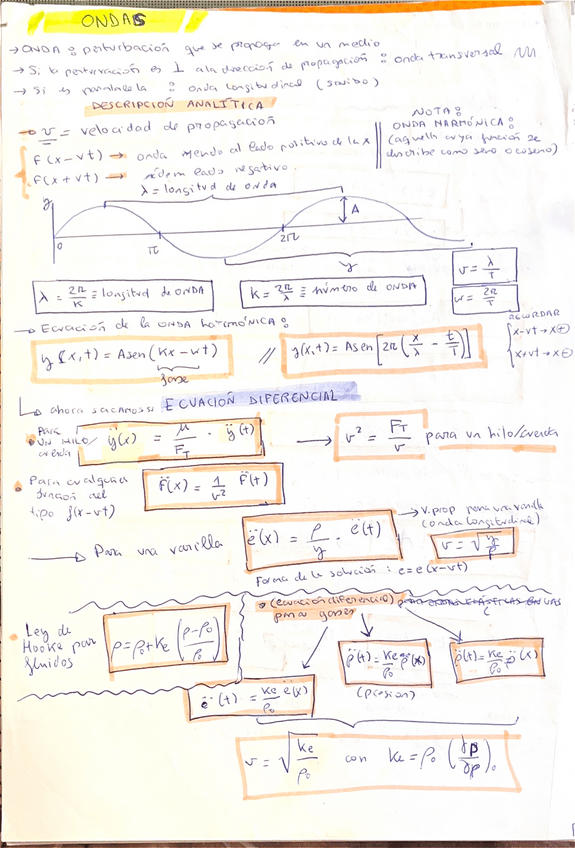 ONDAS
→ ONDA : perturbación que se propaga en un medio
→ Si la perturvación es ⊥ a la dirección de propagación : onda transversal
→ Si es paralela : onda longitudinal (sonido)
DESCRIPCIÓN ANALÍTICA
→ v = velocidad de propagación
f(x-vt) → onda yendo al lado positivo de la x
f(x+vt) → ídem lado negativo.
NOTA:
ONDA HARMÓNICA:
(aquella cuya función se
describe como seno o coseno)
λ = longitud de onda
y
A
0
π
2π
λ = 2π/K ≡ longitud de ONDA
K = 2π/λ ≡ número de ONDA
v = λ/T
w = 2π/T
→ Ecuación de la ONDA harmónica :
y(x,t) = A sen (Kx - wt)
fase
// y(x,t) = A sen [2π (x/λ - t/T)]
RECORDAR
x-vt → x⊕
x+vt → x⊖
↳ ahora sacamos : ECUACIÓN DIFERENCIAL
Para
UN HILO/
cuerda
ÿ(x) = μ/F_T · ÿ(t)
→ v² = F_T/v para un hilo/cuerda
• Para cualquier
función del
tipo f(x-vt)
f̈(x) = 1/v² f̈(t)
→ Para una varilla
ë(x) = ρ/y · ë(t)
→ v. prop para una varilla
(onda longitudinal)
v = √(y/ρ)
Forma de la solución : e = e(x-vt)
• (ecuación diferencial)
para gases
• Ley de
Hooke para
fluidos
p = p₀ + Ke (ρ-ρ₀/ρ₀)
ë(t) = Ke/ρ₀ ë(x)
p̈(t) = Ke/ρ₀ p̈(x)
(presion)
ρ̈(t) = Ke/ρ₀ ρ̈(x)
v = √(Ke/ρ₀) con Ke = ρ₀ (∂p/∂ρ)₀